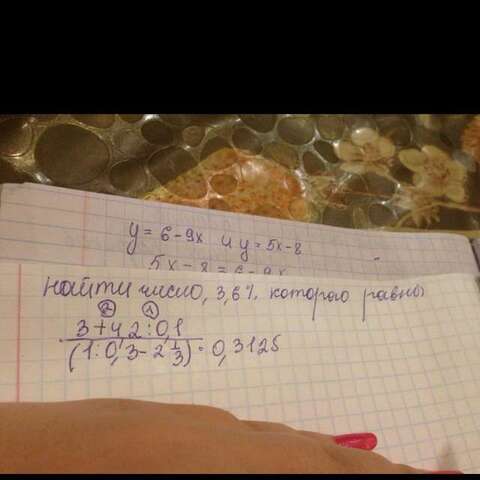 y = 6 - 9x и y = 5x - 8
5x - 8 = 6 - 9x
найти число, 3,6% которого равны
② ①
3 + 4,2 : 0,1
(1 : 0,3 - 2 1/3) · 0,3125